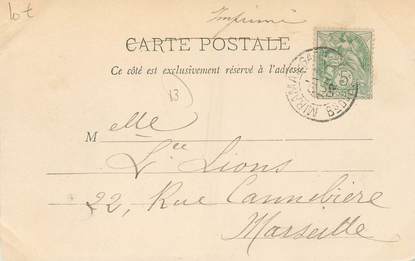 lot
Imprimé
CARTE POSTALE
Ce côté est exclusivement réservé à l'adresse.
13
Melle
Lce Lions
22, Rue Cannebière
Marseille